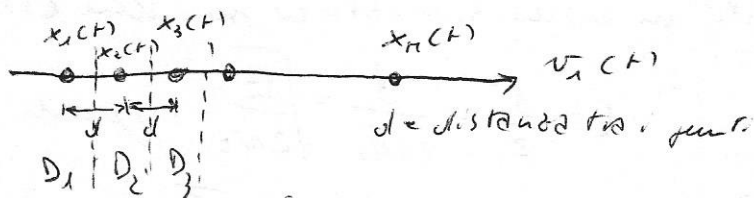 x₁(t) x₂(t) x₃(t) xₙ(t) v₁(t)
d d d = distanza tra i punti
D₁ D₂ D₃